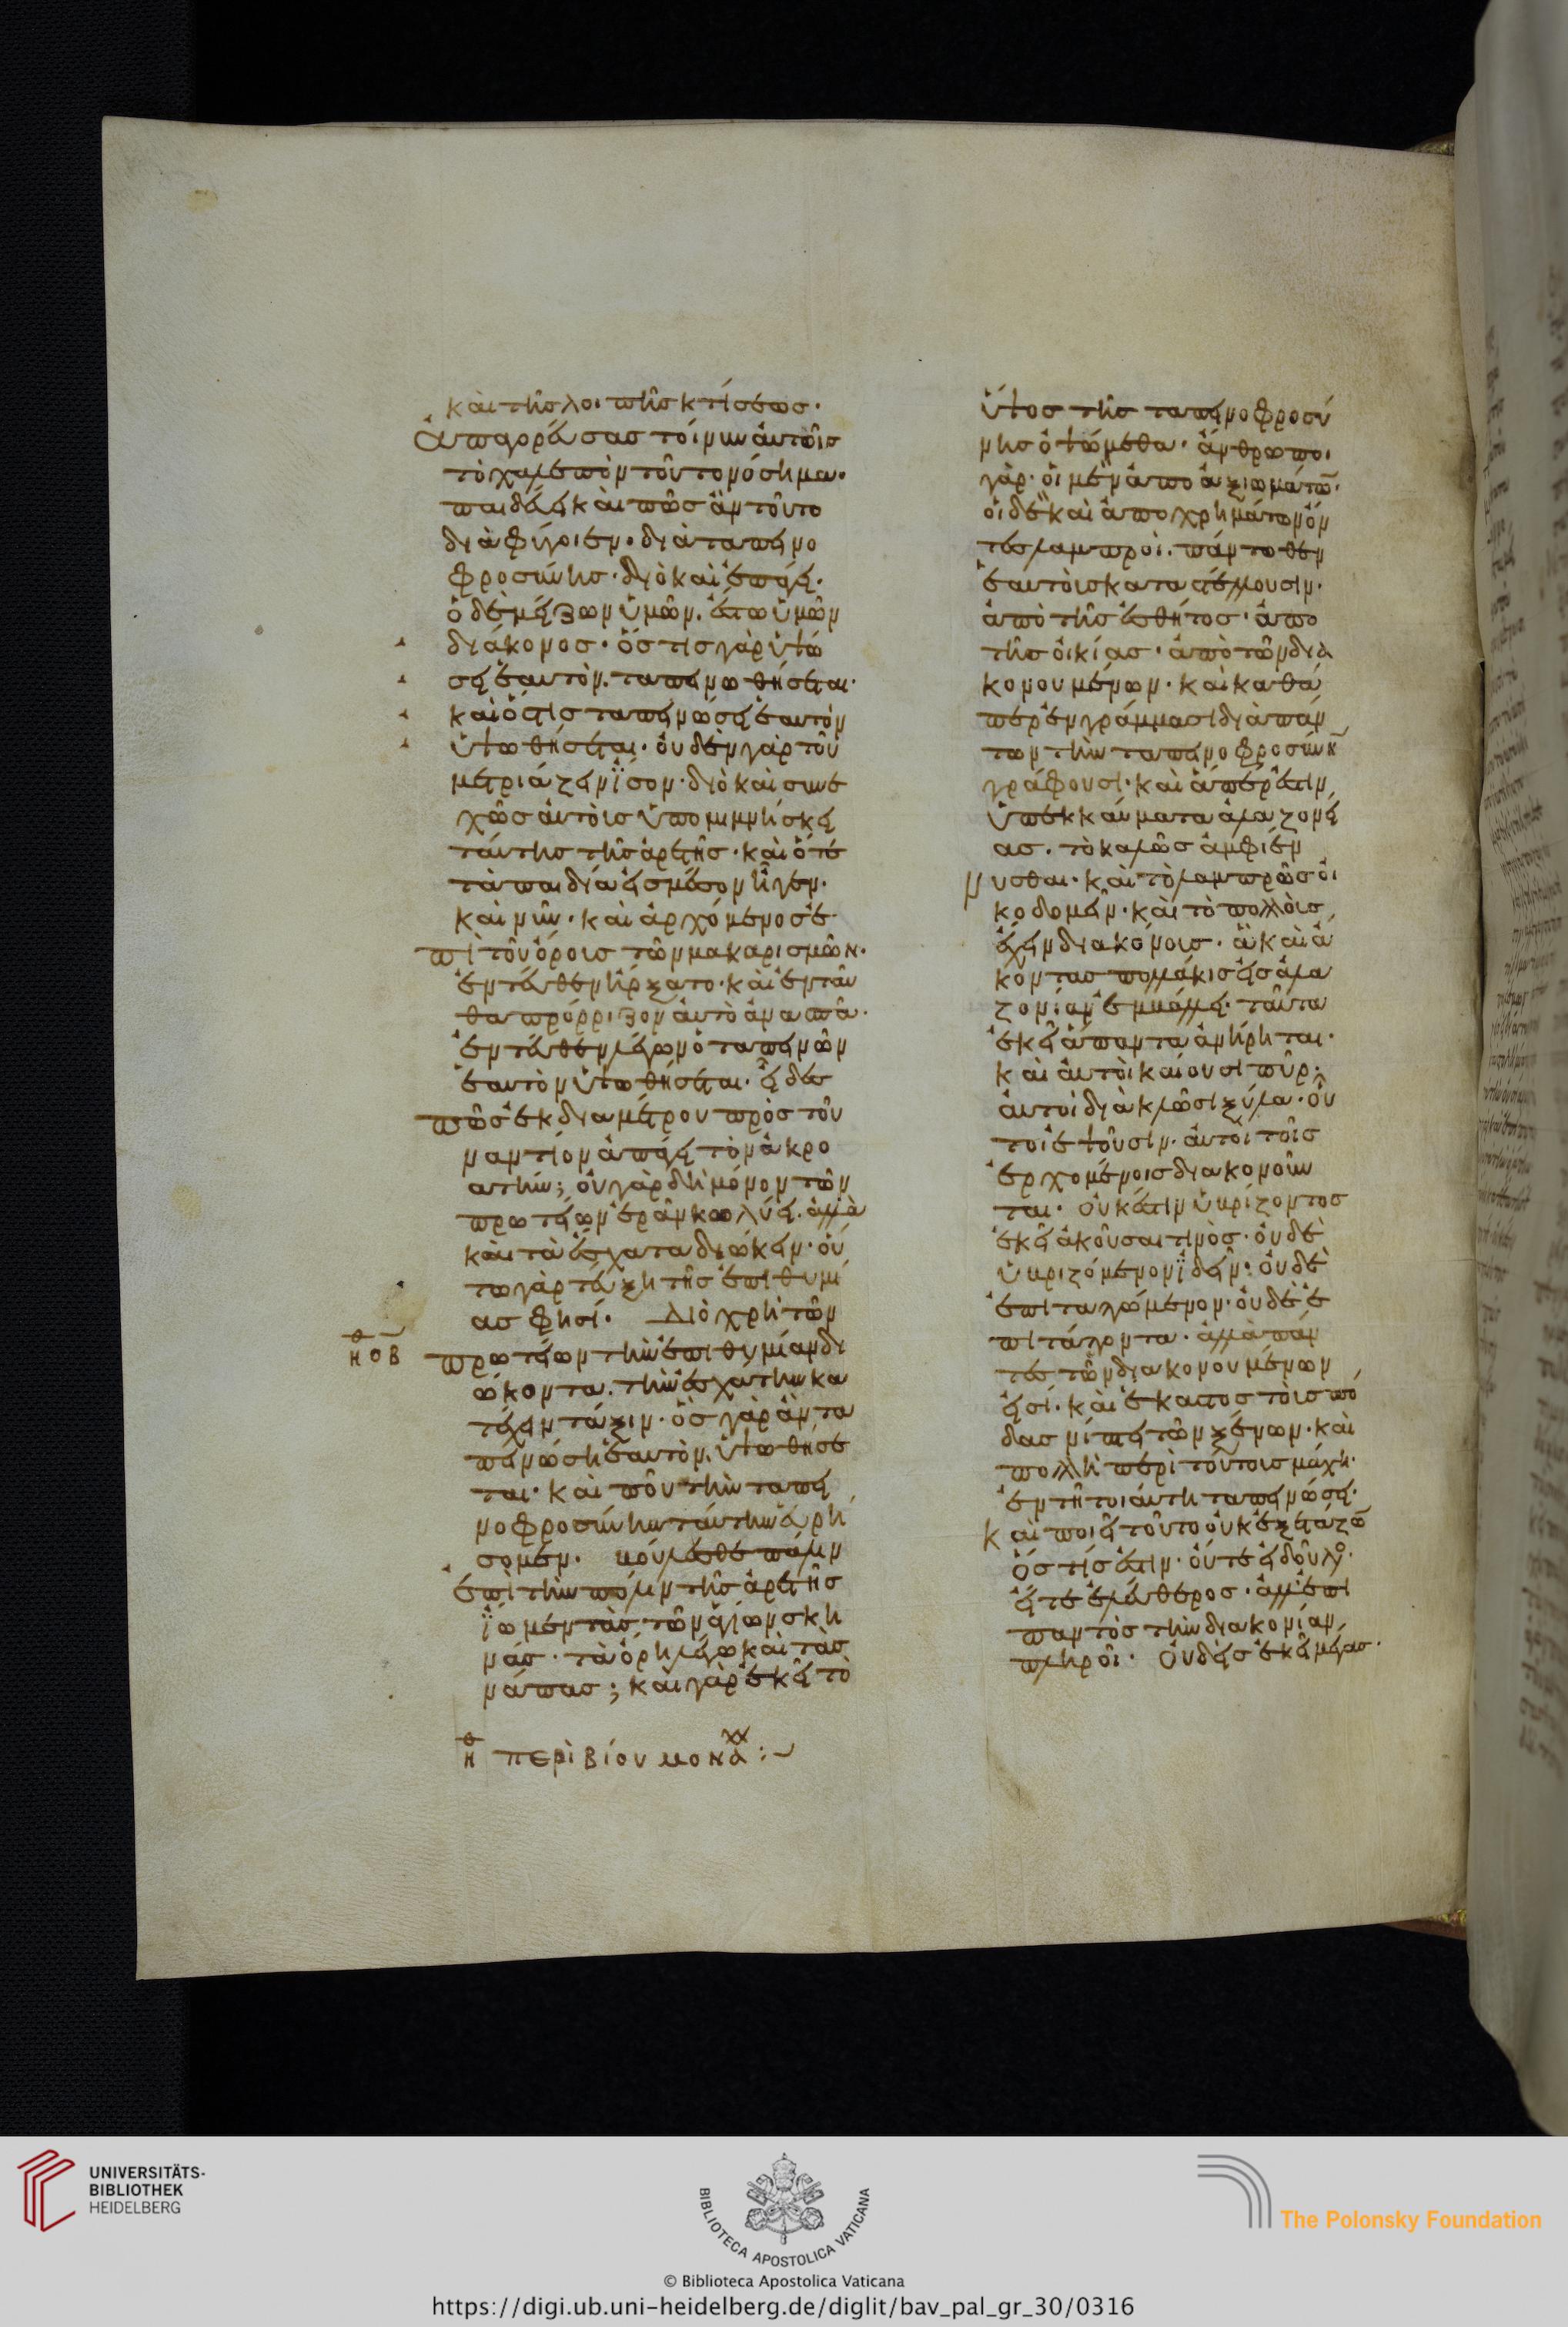 καὶ τῆς λοιπῆς κτίσεως·
Ἀπαγορεύσας τοίνυν αὐτοῖς
τὸ χαλεπὸν τοῦτο νόσημα·
παιδεύει καὶ πῶς ἂν τοῦτο
διαφύγοιεν· διὰ ταπεινο
φροσύνης· διὸ καὶ ἐπάγει·
ὁ δὲ μείζων ὑμῶν. ἔστω ὑμῶν
διάκονος· ὅστις γὰρ ὑψώ
σει ἑαυτὸν. ταπεινωθήσεται·
καὶ ὅστις ταπεινώσει ἑαυτὸν
ὑψωθήσεται· οὐδὲν γὰρ τοῦ
μετριάζειν ἴσον· διὸ καὶ συνε
χῶς αὐτοὺς ὑπομιμνήσκει
ταύτης τῆς ἀρετῆς· καὶ ὅτε
τὰ παιδία εἰς μέσον ἦγεν·
καὶ νῦν· καὶ ἀρχόμενος ἐ
πὶ τοῦ ὄρους τῶν μακαρισμῶν·
ἐντεῦθεν ἤρξατο· καὶ ἐνταῦ
θα πρόρριζον αὐτὸ ἀνασπᾶ·
ἐντεῦθεν λέγων ὁ ταπεινῶν
ἑαυτὸν ὑψωθήσεται· εἶδες
πῶς ἐκ διαμέτρου πρὸς τοὐ
ναντίον ἀπάγει τὸν ἀκρο
ατήν; οὐ γὰρ δὴ μόνον τῶν
πρωτείων ἐρᾶν κωλύει. ἀλλὰ
καὶ τὰ ἔσχατα διώκειν· οὕ
τω γὰρ τεύξη τῆς ἐπιθυμί
ας φησί· Διὸ χρὴ τῶν
ΗΘ ΟΒ
πρωτείων τὴν ἐπιθυμίαν δι
ώκοντα. τὴν ἐσχάτην κα
τέχειν τάξιν· ὃς γὰρ ἂν τα
πεινώσῃ ἑαυτὸν. ὑψωθήσε
ται· καὶ ποῦ τὴν ταπει
νοφροσύνην ταύτην εὑρή
σομεν· βούλεσθε πάλιν
ἐπὶ τὴν πόλιν τῆς ἀρετῆς
ἴωμεν τὰς τῶν ἁγίων σκη
νάς· τὰ ὄρη λέγω καὶ τὰς
νάπας; καὶ γὰρ ἐκεῖ τὸ
ΗΘ περὶ βίου μοναχχ:~
ὕψος τῆς ταπεινοφροσύ
νης ὀψώμεθα· ἄνθρωποι
γὰρ· οἱ μὲν ἀπὸ ἀξιωμάτω·
οἱ δὲ καὶ ἀπὸ χρημάτων ὄν
τες λαμπροὶ. πάντοθεν
ἑαυτοὺς καταστέλλουσιν·
ἀπὸ τῆς ἐσθῆτος· ἀπὸ
τῆς οἰκίας· ἀπὸ τῶν δια
κονουμένων· καὶ καθά
περ ἐν γράμμασι διὰ πάν
των τὴν ταπεινοφροσύνη
γράφουσι· καὶ ἅπερ ἐστὶν
ὑπεκκαύματα ἀλαζονεί
ας. τὸ καλῶς ἀμφιέν
νυσθαι· καὶ τὸ λαμπρῶς οἰ
κοδομεῖν· καὶ τὸ πολλοὺς
ἔχειν διακόνους. ἃ καὶ ἄ
κοντας πολλάκις εἰς ἀλα
ζονίαν ἐμβάλλει· ταῦτα
ἐκεῖ ἅπαντα ἀνήρηται·
καὶ αὐτοὶ καίουσι πῦρ·
αὐτοὶ διακλῶσι ξύλα· οὗ
τοι ἕψουσιν. αὐτοὶ τοῖς
ἐρχομένοις διακονοῦν
ται· οὐκ ἔστιν ὑβρίζοντος
ἐκεῖ ἀκοῦσαί τινος· οὐδὲ
ὑβριζόμενον ἰδεῖν· οὐδὲ
ἐπιταγόμενον· οὐδὲ ἐ
πιτάγοντα· ἀλλὰ πάν
τες τῶν διακονουμένων
εἰσί· καὶ ἕκαστος τοὺς πό
δας νίπτει τῶν ξένων· καὶ
πολλὴ περὶ τούτοις μάχη·
ἐν τῆ τοιαύτη ταπεινώσει·
καὶ ποιεῖ τοῦτο οὐκ ἐξετάζω
ὅστις ἐστίν· οὔτε εἰ δοῦλο·
εἴτε ἐλεύθερος· ἀλλ' ἐπὶ
παντὸς τὴν διακονίαν
πληροῖ· Οὐδεὶς ἐκεῖ μέγας·
UNIVERSITÄTS-
BIBLIOTHEK
HEIDELBERG
BIBLIOTECA APOSTOLICA VATICANA
The Polonsky Foundation
© Biblioteca Apostolica Vaticana
https://digi.ub.uni-heidelberg.de/diglit/bav_pal_gr_30/0316